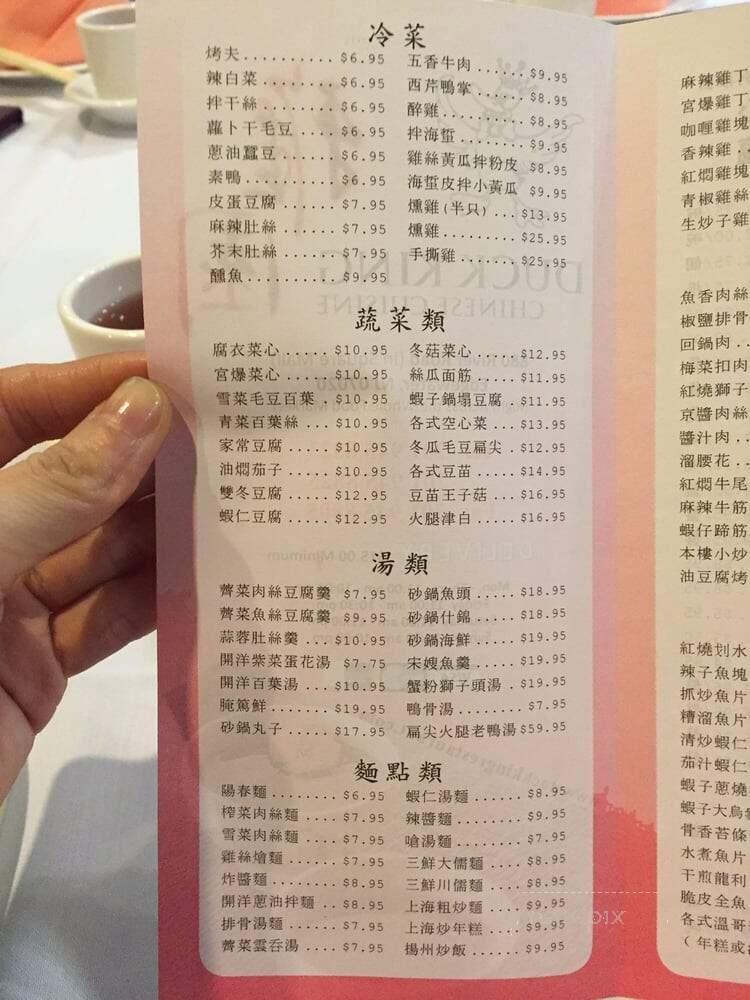 冷菜
烤夫..........$6.95
辣白菜........$6.95
拌干絲........$6.95
蘿卜干毛豆....$6.95
蔥油蠶豆......$6.95
素鴨..........$6.95
皮蛋豆腐......$7.95
麻辣肚絲......$7.95
芥末肚絲......$7.95
醺魚..........$9.95
五香牛肉......$9.95
西芹鴨掌......$8.95
醉雞..........$8.95
拌海蜇........$9.95
雞絲黃瓜拌粉皮 $8.95
海蜇皮拌小黃瓜 $9.95
燻雞(半只)...$13.95
燻雞.........$25.95
手撕雞.......$25.95
蔬菜類
腐衣菜心.....$10.95
宮爆菜心.....$10.95
雪菜毛豆百葉.$10.95
青菜百葉絲...$10.95
家常豆腐.....$10.95
油燜茄子.....$10.95
雙冬豆腐.....$12.95
蝦仁豆腐.....$12.95
冬菇菜心.....$12.95
絲瓜面筋.....$11.95
蝦子鍋塌豆腐.$11.95
各式空心菜...$13.95
冬瓜毛豆扁尖.$12.95
各式豆苗.....$14.95
豆苗王子菇...$16.95
火腿津白.....$16.95
湯類
薺菜肉絲豆腐羹 $7.95
薺菜魚絲豆腐羹 $9.95
蒜蓉肚絲羹...$10.95
開洋紫菜蛋花湯 $7.75
開洋百葉湯...$10.95
腌篤鮮.......$19.95
砂鍋丸子.....$17.95
砂鍋魚頭.....$18.95
砂鍋什錦.....$18.95
砂鍋海鮮.....$19.95
宋嫂魚羹.....$19.95
蟹粉獅子頭湯.$19.95
鴨骨湯.......$7.95
扁尖火腿老鴨湯$59.95
麵點類
陽春麵........$6.95
榨菜肉絲麵....$7.95
雪菜肉絲麵....$7.95
雞絲燴麵......$7.95
炸醬麵........$8.95
開洋蔥油拌麵..$8.95
排骨湯麵......$7.95
薺菜雲吞湯....$7.95
蝦仁湯麵......$8.95
辣醬麵........$9.95
嗆湯麵........$7.95
三鮮大儒麵....$8.95
三鮮川儒麵....$8.95
上海粗炒麵....$9.95
上海炒年糕....$9.95
揚州炒飯......$9.95
麻辣雞丁
宮爆雞丁
咖喱雞塊
香辣雞..
紅燜雞塊
青椒雞絲
生炒子雞
魚香肉絲
椒鹽排骨
回鍋肉..
梅菜扣肉
紅燒獅子
京醬肉絲
醬汁肉..
溜腰花..
紅燜牛尾
麻辣牛筋
蝦仔蹄筋
本樓小炒
油豆腐烤
紅燒划水
辣子魚塊
抓炒魚片
糟溜魚片
清炒蝦仁
茄汁蝦仁
蝦子蔥燒
蝦子大烏
骨香苔條
水煮魚片
干煎龍利
脆皮全魚
各式溫哥
(年糕或